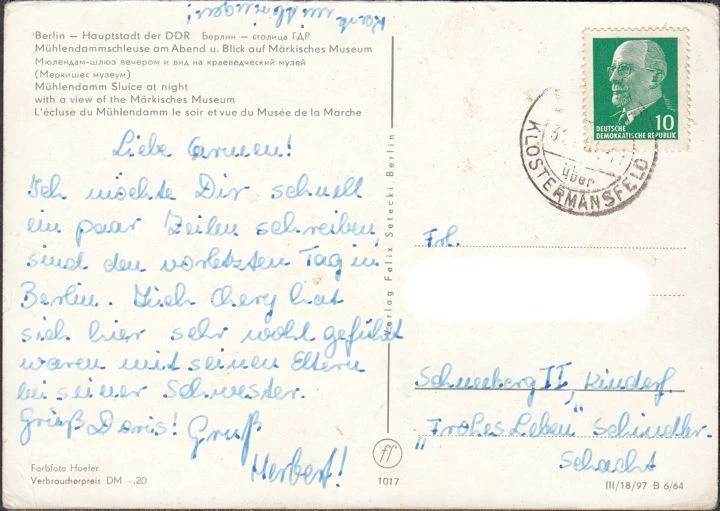 Karte
mitbringen!
Berlin – Hauptstadt der DDR Берлин – столица ГДР
Mühlendammschleuse am Abend u. Blick auf Märkisches Museum
Мюлендам-шлюз вечером и вид на краеведческий музей
(Меркишес музеум)
Mühlendamm Sluice at night
with a view of the Märkisches Museum
L'écluse du Mühlendamm le soir et vue du Musée de la Marche
Liebe Carmen!
Ich möchte Dir schnell
ein paar Zeilen schreiben,
sind den vorletzten Tag in
Berlin. hat
sich hier sehr wohl gefühlt
waren mit seinen Eltern
bei seiner Schwester.
Grüß Doris! Gruß
Herbert!
Farbfoto Hoefer
Verbraucherpreis DM –,20
Verlag Felix Setecki, Berlin
ff
1017
10
DEUTSCHE
DEMOKRATISCHE REPUBLIK
über
KLOSTERMANSFELD
Frl.
Schneeberg II, Kinderf.
"Frohes Leben" Schindler-
Schacht
III/18/97 B 6/64